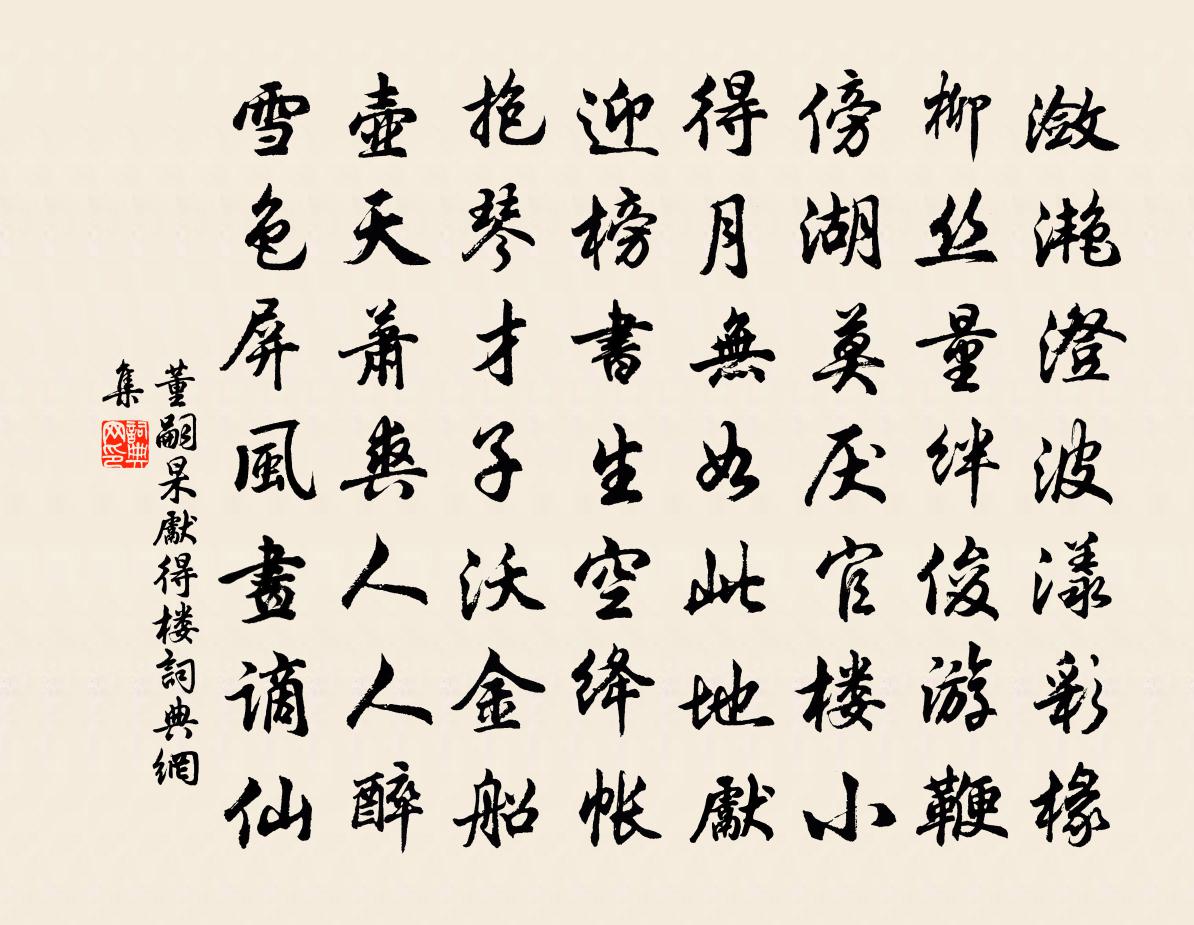 潋滟澄波漾彩椽
柳丝量绊俊游鞭
傍湖莫厌官楼小
得月無如此地獻
迎榜書生空绛帐
抱琴才子沃金船
壺天萧爽人人醉
雪色屏風畫谪仙
董嗣杲獻得楼詞典網
集
詞典
网印